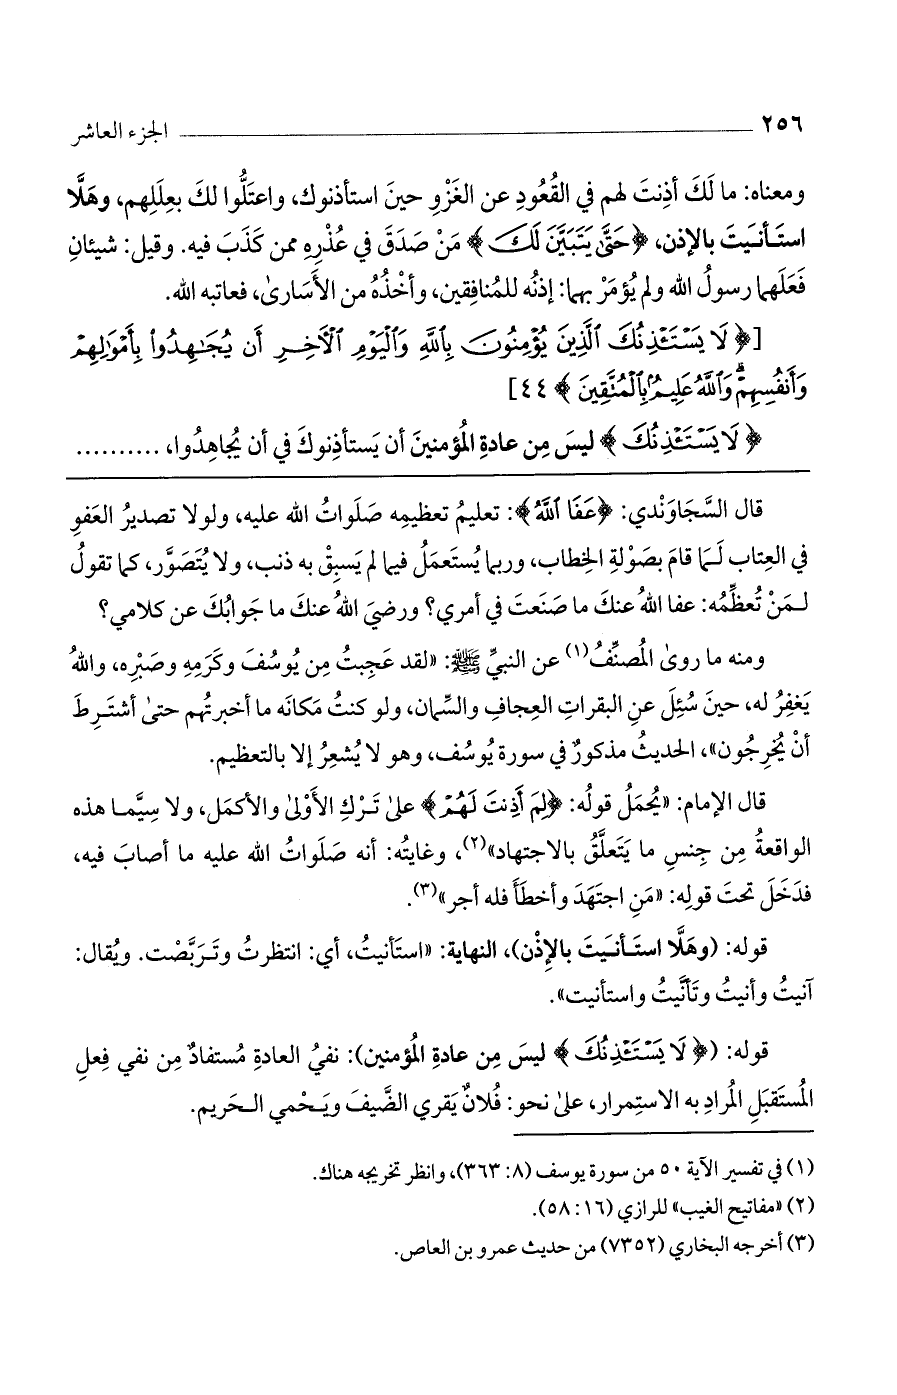 ٢٥٦ الجزء العاشر
ومعناه: ما لَكَ أذِنتَ لهم في القُعُودِ عن الغَزْوِ حينَ استأذنوك، واعتَلُّوا لكَ بعِلَلِهم، وهَلَّا
استَأنَيتَ بالإذن، ﴿حَتَّىٰ يَتَبَيَّنَ لَكَ﴾ مَنْ صَدَقَ في عُذْرِه ممن كَذَبَ فيه. وقيل: شيئانِ
فَعَلَهما رسولُ الله ولم يُؤمَرْ بهما: إذنُه للمُنافِقين، وأخْذُهُ من الأَسارىٰ، فعاتبه الله.
[﴿لَا يَسْتَـْٔذِنُكَ ٱلَّذِينَ يُؤْمِنُونَ بِٱللَّهِ وَٱلْيَوْمِ ٱلْآخِرِ أَن يُجَـٰهِدُوا۟ بِأَمْوَٰلِهِمْ
وَأَنفُسِهِمْ ۗ وَٱللَّهُ عَلِيمٌۢ بِٱلْمُتَّقِينَ﴾ ٤٤]
﴿لَا يَسْتَـْٔذِنُكَ﴾ ليسَ مِن عادةِ المُؤمنينَ أن يَستأذِنوكَ في أن يُجاهِدُوا، ..........
قال السَّجَاوَنْدي: ﴿عَفَا ٱللَّهُ﴾: تعليمُ تعظيمِه صَلَواتُ الله عليه، ولولا تصديرُ العَفوِ
في العِتاب لَـمَا قامَ بصَوْلةِ الخِطاب، وربما يُستَعمَلُ فيما لم يَسبِقْ به ذنب، ولا يُتَصوَّر، كما تقولُ
لـمَنْ تُعظِّمُه: عفا اللهُ عنكَ ما صَنَعتَ في أمري؟ ورضيَ اللهُ عنكَ ما جَوابُكَ عن كلامي؟
ومنه ما روىٰ المُصنِّفُ(١) عن النبيِّ ﷺ: «لقد عَجِبتُ مِن يُوسُفَ وكَرَمِهِ وصَبْرِه، واللهُ
يَغفِرُ له، حينَ سُئِلَ عنِ البقراتِ العِجافِ والسِّمان، ولو كنتُ مَكانَه ما أخبرتُهم حتىٰ أشتَـرِطَ
أنْ يُخرِجُون»، الحديثُ مذكورٌ في سورة يُوسُف، وهو لا يُشعِرُ إلا بالتعظيم.
قال الإمام: «يُحمَلُ قولُه: ﴿لِمَ أَذِنتَ لَهُمْ﴾ علىٰ تَـرْكِ الأَوْلىٰ والأكمَل، ولا سِيَّمـا هذه
الواقعةُ مِن جِنسِ ما يَتَعلَّقُ بالاجتهاد»(٢)، وغايتُه: أنه صَلَواتُ الله عليه ما أصابَ فيه،
فدَخَلَ تحتَ قولِه: «مَنِ اجتَهَدَ وأخطَأَ فله أجر»(٣).
قوله: (وهَلَّا استَـأنَيتَ بالإِذْن)، النهاية: «استَأنيتُ، أي: انتظرتُ وتَـرَبَّصْت. ويُقال:
آنيتُ وأنيتُ وتَأنَّيتُ واستأنيت».
قوله: (﴿لَا يَسْتَـْٔذِنُكَ﴾ ليسَ مِن عادةِ المُؤمنين): نفيُ العادةِ مُستفادٌ مِن نفي فِعلِ
المُستَقبَلِ المُرادِ به الاستِمرار، علىٰ نحو: فُلانٌ يَقري الضَّيفَ ويَـحْمي الـحَريم.
(١) في تفسير الآية ٥٠ من سورة يوسف (٨: ٣٦٣)، وانظر تخريجه هناك.
(٢) «مفاتيح الغيب» للرازي (١٦: ٥٨).
(٣) أخرجه البخاري (٧٣٥٢) من حديث عمرو بن العاص.